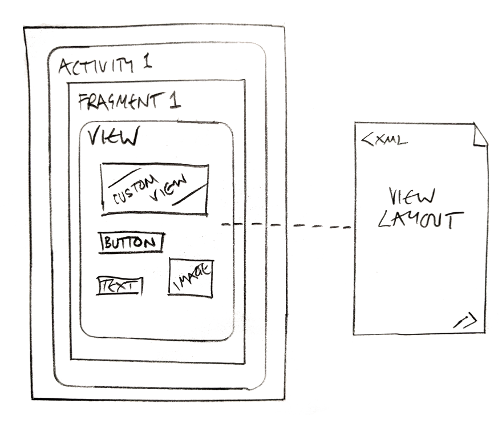 ACTIVITY 1
FRAGMENT 1
VIEW
CUSTOM VIEW
BUTTON
TEXT
IMAGE
<XML
VIEW
LAYOUT
/>